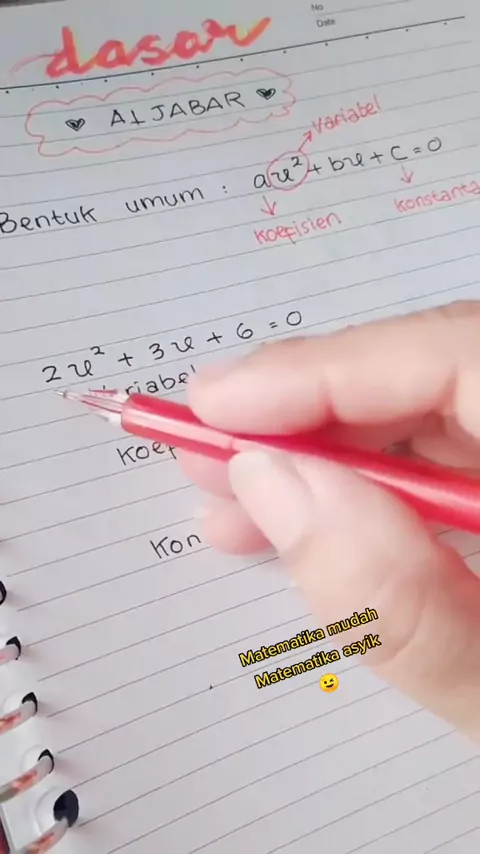 No
Date
dasar
ALJABAR
Variabel
Bentuk umum : ax² + bx + c = 0
Koefisien
Konstanta
2x² + 3x + 6 = 0
Kon
Matematika mudah
Matematika asyik
😉